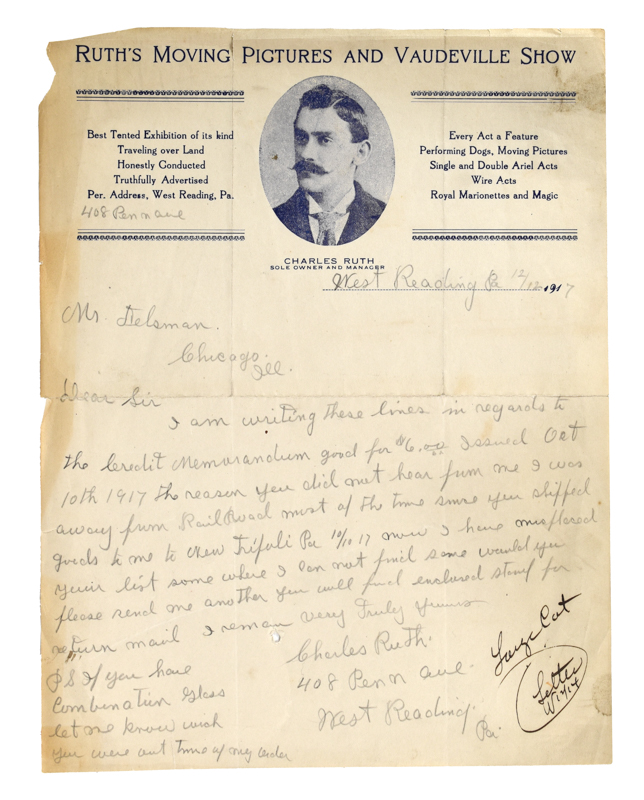 RUTH'S MOVING PICTURES AND VAUDEVILLE SHOW
Best Tented Exhibition of its kind
Traveling over Land
Honestly Conducted
Truthfully Advertised
Per. Address, West Reading, Pa.
408 Penn ave
Every Act a Feature
Performing Dogs, Moving Pictures
Single and Double Ariel Acts
Wire Acts
Royal Marionettes and Magic
CHARLES RUTH
SOLE OWNER AND MANAGER
West Reading Pa 12/12 1917
Mr. Felsman.
Chicago.
Ill.
Dear Sir
I am writing these lines in regards to
the Credit Memorandum good for $6.00 Issued Oct
10th 1917 the reason you did not hear from me I was
away from RailRoad most of the time since you shipped
goods to me to New Tripoli Pa 10/10 17 now I have misplaced
your list some where I can not find same would you
please send me another you will find enclosed stamp for
return mail I remain very Truly yours
Charles Ruth.
408 Penn ave.
West Reading.
Pa.
P.S If you have
Combination Glass
let me know wich
you were out time of my order
Large Cat
Letter
W 12/14